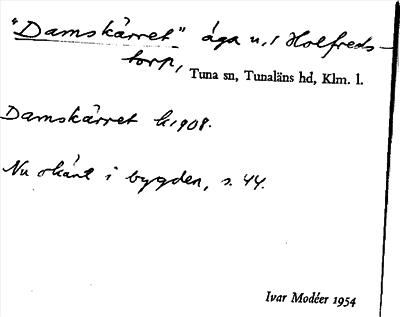 "Damskärret" äga u. i Holfreds-
torp, Tuna sn, Tunaläns hd, Klm. l.
Damskärret k. 1908.
Nu okänt i bygden, s. 44.
Ivar Modéer 1954